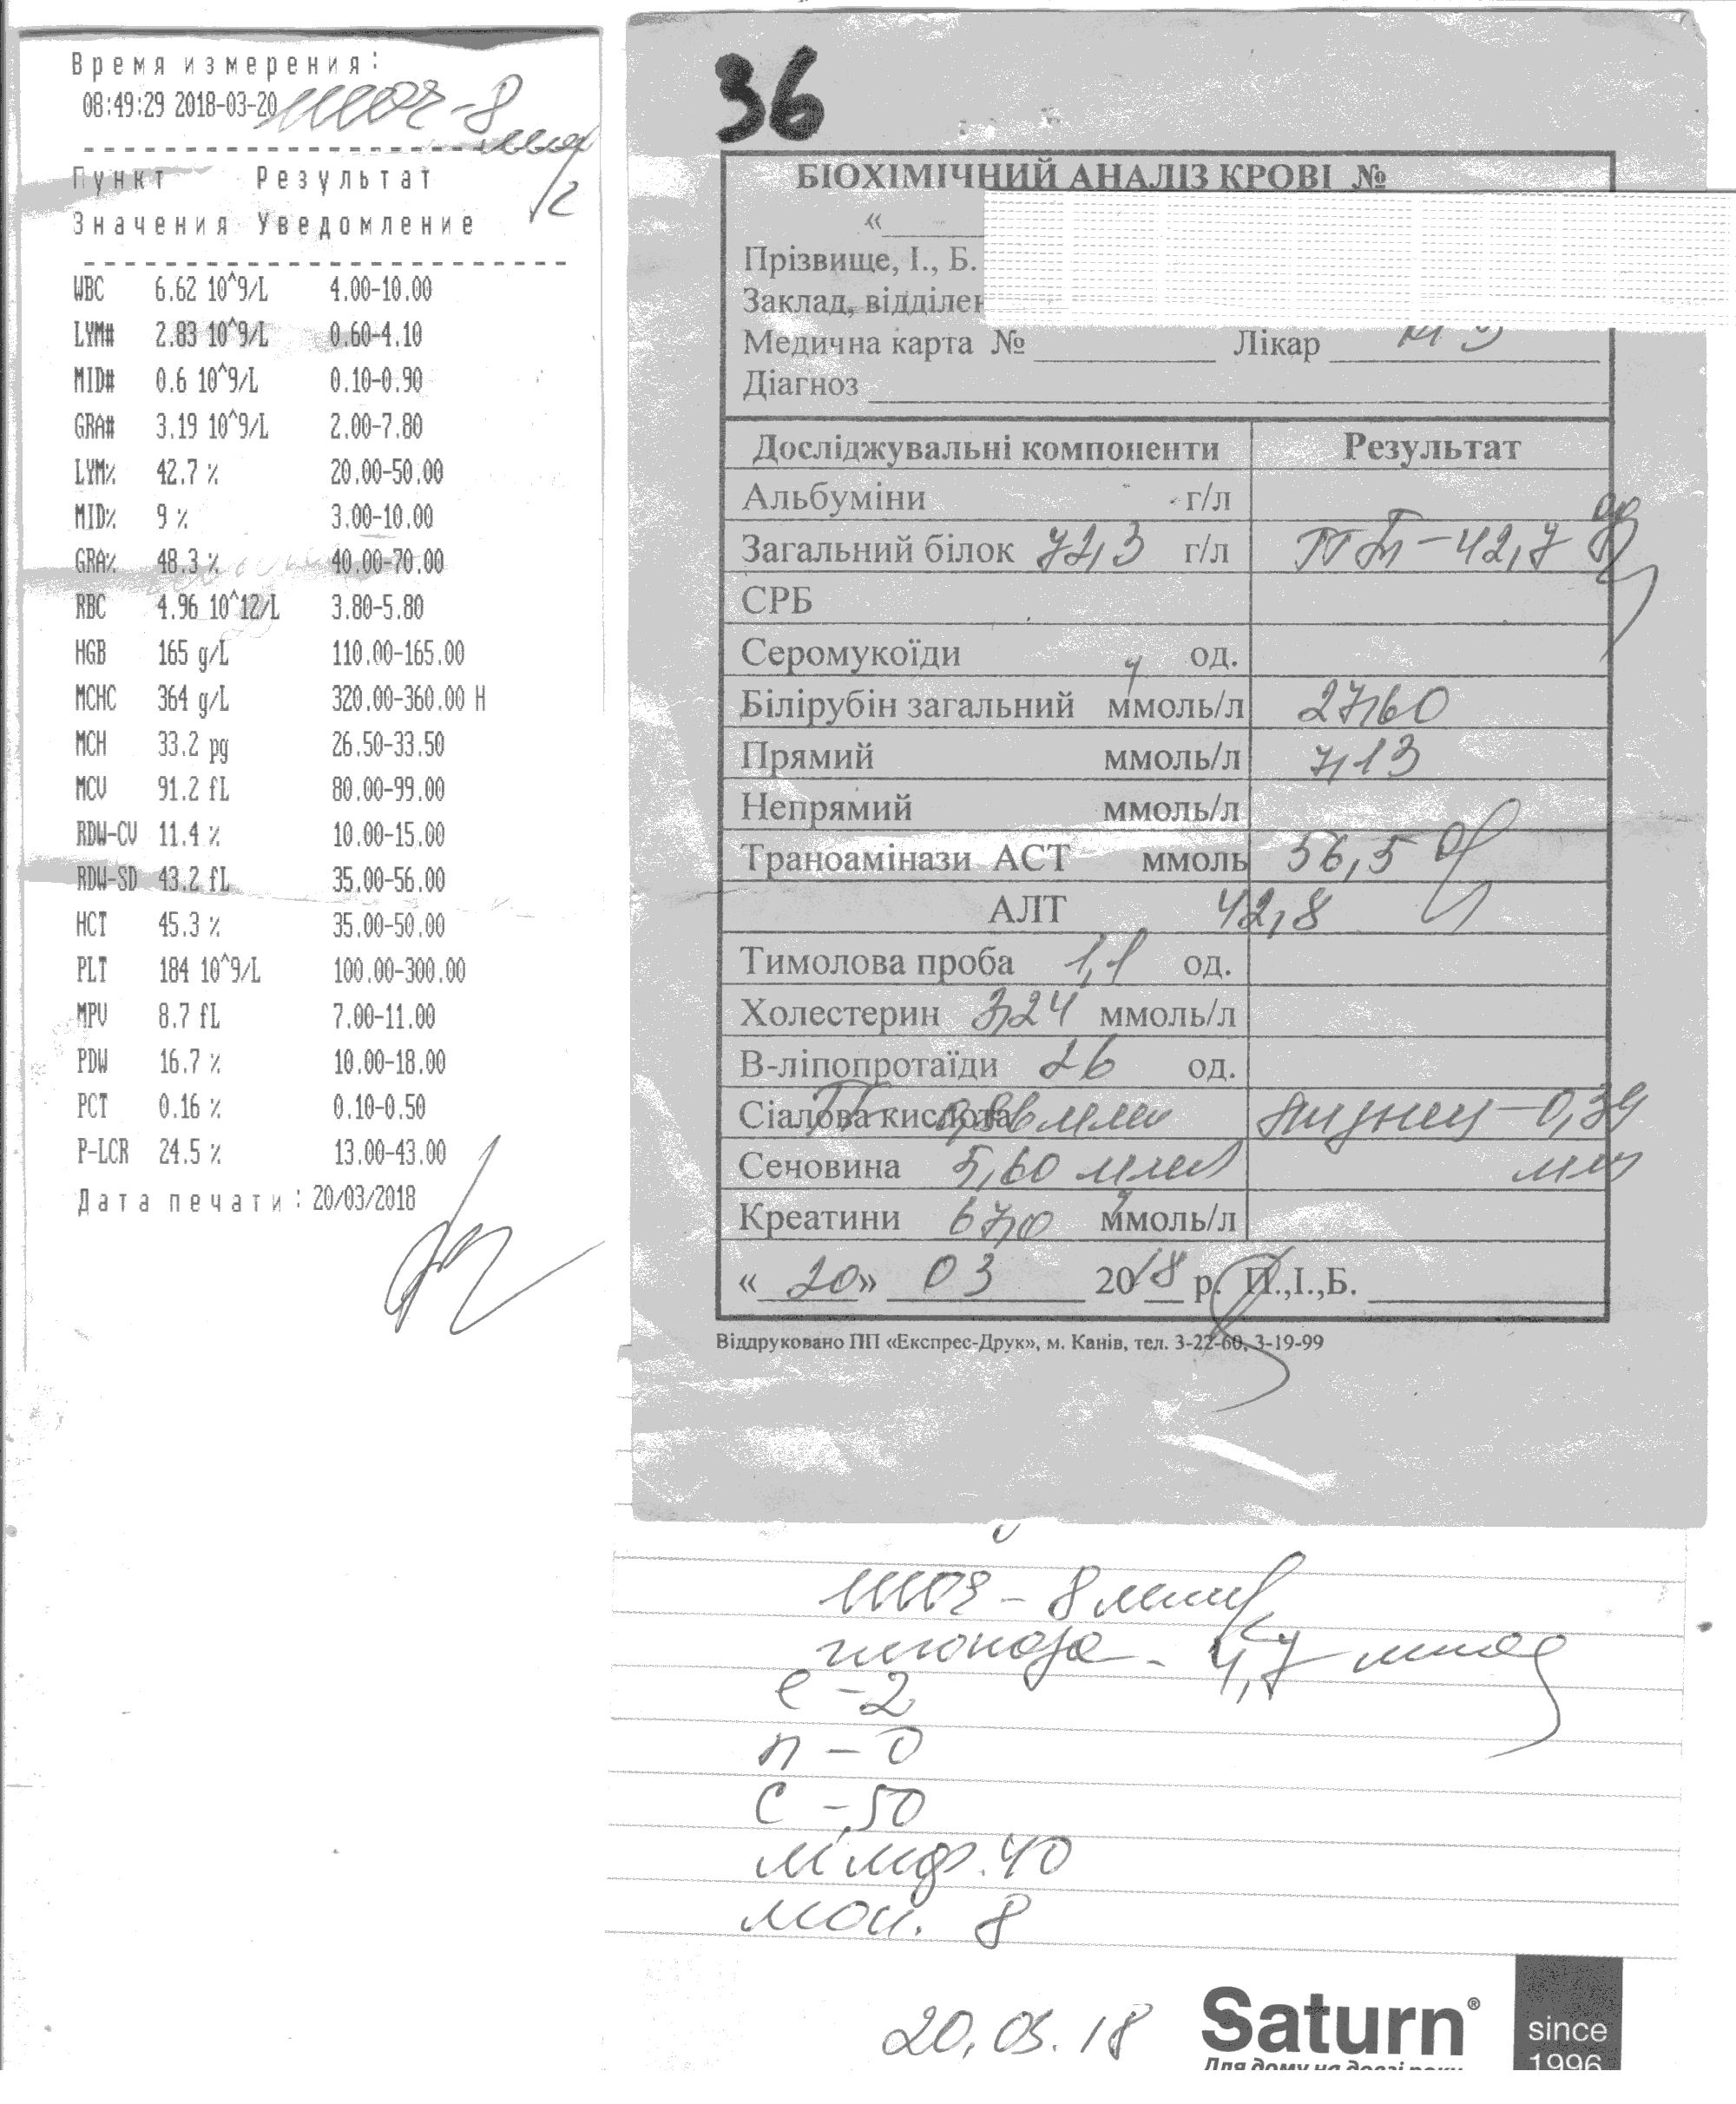 Время измерения:
08:49:29 2018-03-20
ШОЭ - 8
мм/г
Пункт Результат
Значения Уведомление
WBC 6.62 10^9/L 4.00-10.00
LYM# 2.83 10^9/L 0.60-4.10
MID# 0.6 10^9/L 0.10-0.90
GRA# 3.19 10^9/L 2.00-7.80
LYM% 42.7 % 20.00-50.00
MID% 9 % 3.00-10.00
GRA% 48.3 % 40.00-70.00
RBC 4.96 10^12/L 3.80-5.80
HGB 165 g/L 110.00-165.00
MCHC 364 g/L 320.00-360.00 H
MCH 33.2 pg 26.50-33.50
MCV 91.2 fL 80.00-99.00
RDW-CV 11.4 % 10.00-15.00
RDW-SD 43.2 fL 35.00-56.00
HCT 45.3 % 35.00-50.00
PLT 184 10^9/L 100.00-300.00
MPV 8.7 fL 7.00-11.00
PDW 16.7 % 10.00-18.00
PCT 0.16 % 0.10-0.50
P-LCR 24.5 % 13.00-43.00
Дата печати: 20/03/2018
36
БІОХІМІЧНИЙ АНАЛІЗ КРОВІ №
«
Прізвище, І., Б.
Заклад, відділен
Медична карта № Лікар
Діагноз
Досліджувальні компоненти Результат
Альбуміни г/л
Загальний білок 72,3 г/л 42,7
СРБ
Серомукоїди од.
Білірубін загальний ммоль/л 27,60
Прямий ммоль/л 7,13
Непрямий ммоль/л
Траноамінази АСТ ммоль 56,5
АЛТ 42,8
Тимолова проба 1,1 од.
Холестерин 3,24 ммоль/л
В-ліпопротаїди 26 од.
Сіалова кислота 0,86 -0,39
Сечовина 5,60
Креатини 67,0 ммоль/л
«20» 03 2018 р. П.,І.,Б.
Віддруковано ПП «Експрес-Друк», м. Канів, тел. 3-22-60, 3-19-99
ШОЭ - 8 мм/г
глюкоза - 4,7
е - 2
п - 0
с - 50
лимф. 40
мон. 8
20.03.18
Saturn®
Для дому на довгі роки
since
1996